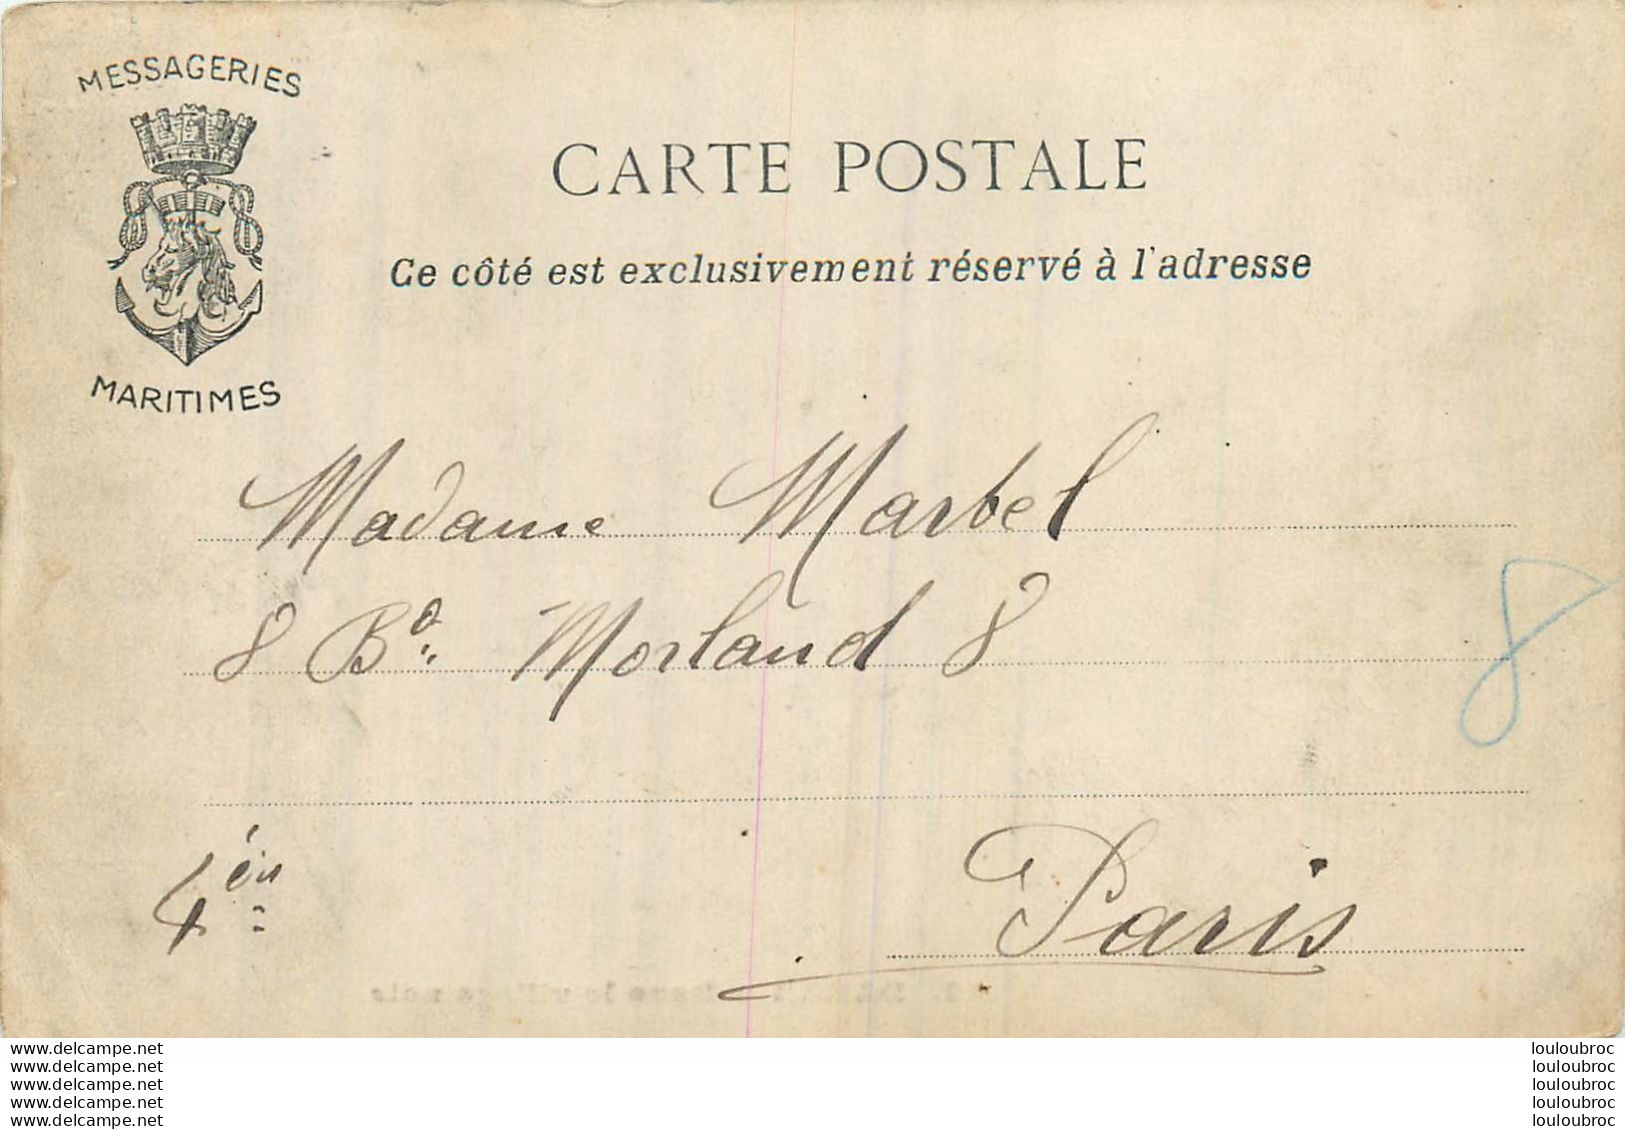 MESSAGERIES
MARITIMES
CARTE POSTALE
Ce côté est exclusivement réservé à l'adresse
Madame Martel
8 Bd. Morland 8
8
4
Paris
www.delcampe.net
www.delcampe.net
www.delcampe.net
www.delcampe.net
www.delcampe.net
louloubroc
louloubroc
louloubroc
louloubroc
louloubroc